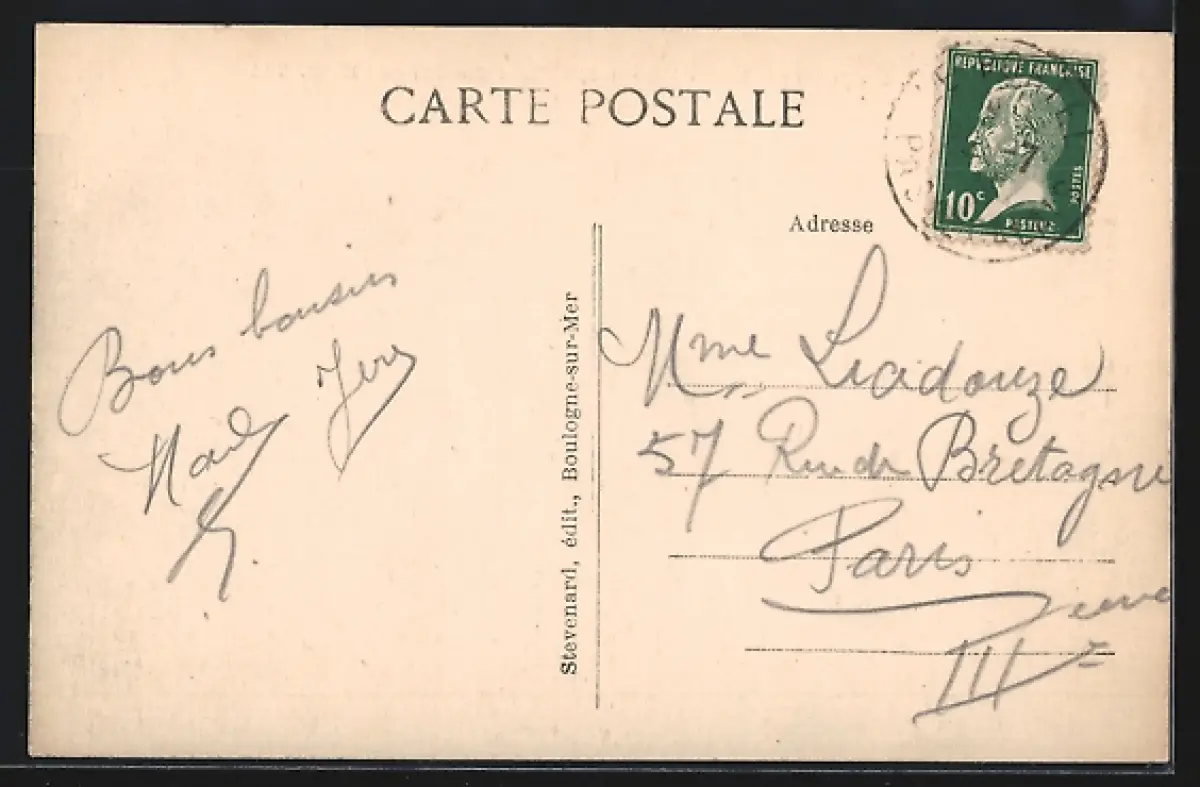 CARTE POSTALE
REPUBLIQUE FRANÇAISE
10c
POSTES
PASTEUR
Adresse
Bons baisers
Stevenard, édit., Boulogne-sur-Mer
Mme Liadouze
57 Rue de Bretagne
Paris
III e